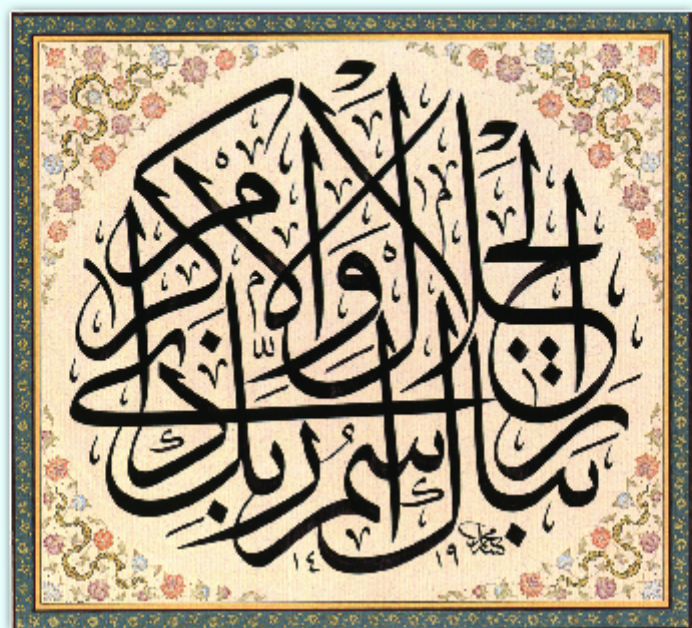 تبارك اسم ربك ذي الجلال والإكرام
١٤١٩